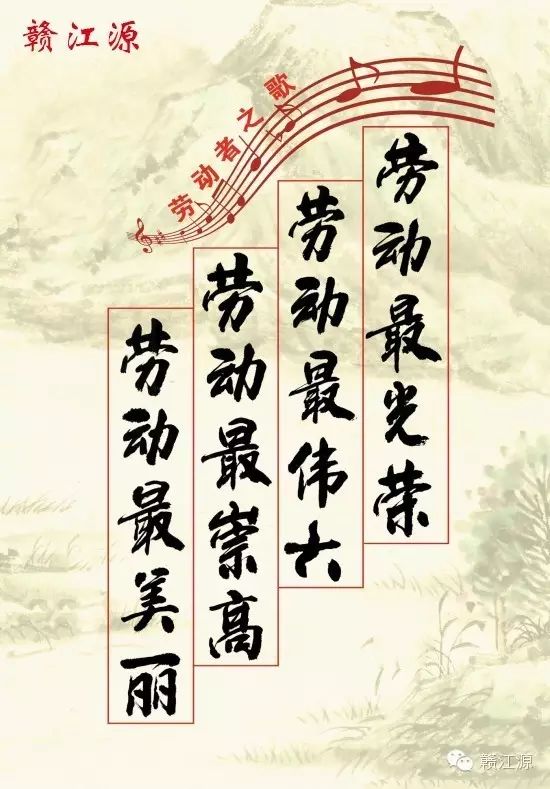 赣江源
劳动者之歌
劳动最光荣
劳动最伟大
劳动最崇高
劳动最美丽
赣江源